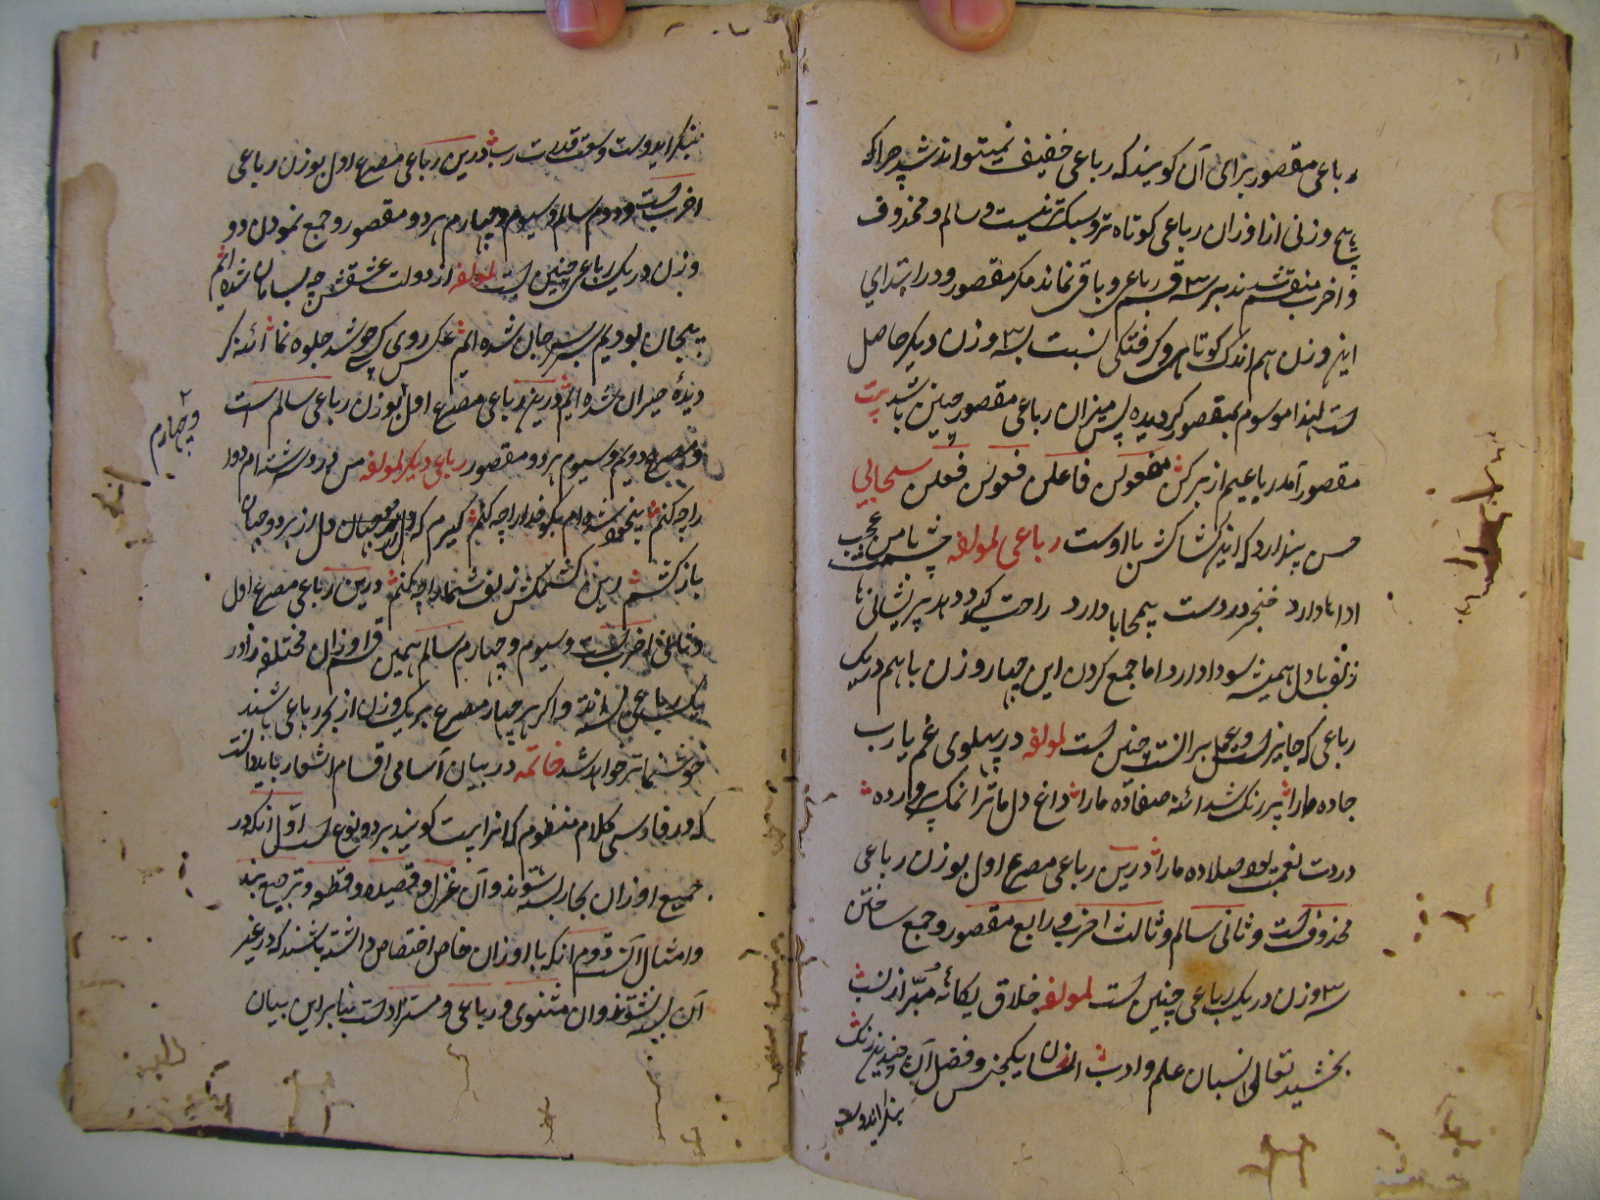 رباعی مقصور برای آن گویند که رباعی خفیف نمیتواند شد چرا که
هیچ وزنی از اوزان رباعی کوتاه تر و سبک تر نیست و سالم و محذوف
و اخرب منقسم شدند بر سه قسم رباعی و باقی نماند مگر مقصور و در ابتدای
این وزن هم اندک کوتاهی و گرفتگی نسبت بسه وزن دیگر حاصل
است لهذا موسوم بمقصور گردیده پس میزان رباعی مقصور چنین باشد بیت
مقصور آمد رباعیم از بر کن مفعولن فاعلن فعولن فعلن سحابی
حسن پندارد که این کشاکش با اوست رباعی لمولفه چشمت با من عجب
اداها دارد خنجر در دست بیمحابا دارد راحت کی دهد پریشانی‌ها
زلفت با دل همیشه سودا دارد اما جمع کردن این چهار وزن با هم در یک
رباعی که جایز است و عمل بر آنست چنین است لمولفه در پهلوی غم یارب
جا ده ما را پر رنگ شد آئنه صفا ده ما را داغ دل ما ترا نمک پرورده
در دت نعمت صلا ده ما را درین رباعی مصرع اول بوزن رباعی
محذوفست و ثانی سالم و ثالث اخرب و رابع مقصور و جمع ساختن
سه وزن در یک رباعی چنین است لمولفه خلاق یگانه مبرا ز نسب
بخشید تعالی انسان علم و ادب انسان یکجنس و فضل آن چندین رنگ
بنگر اید وست
بنگر اید وست وسعت قدرت رب درین رباعی مصرع اول بوزن رباعی
اخربست و دوم سالم و سیوم و چهارم هر دو مقصور و جمع نمودن دو
وزن در یک رباعی چنین است لمولفه از دولت عشقش چه بسامان شده ایم
بیجان بودیم سر بسر جان شده ایم عکس روی کی خوشد جلوه نما آئنه گر
دیدهٔ حیران شده ایم درین رباعی مصرع اول بوزن رباعی سالم است
و چهارم
و مصرع دویم و سیوم هر دو مقصور رباعی دیگر لمولفه من درد سرشته ام دوا
را چه کنم بیخود شده ام بگو خدا را چه کنم گیرم که دل از هر دو جهان
باز کشم این کشمکش زلف شما را چه کنم درین رباعی مصرع اول
و ثانی اخربست و سیوم و چهارم سالم همین قسم اوزان مختلفه را در
یک رباعی و اگر هر چهار مصرع بر یک وزن از بحر رباعی باشند
خوشنما تر خواهد شد خاتمه در بیان آسامی اقسام اشعار باید دانست
که در فارسی کلام منظوم که انرا بیت گویند بر دو نوع است اول آنکه در
جمیع اوزان بحار بسته شوند و آن غزل و قصیده و قطعه و ترجیع بند
و امثال آنست دوم انکه با اوزان خاص اختصاص داشته باشند که در غیر
آن بسته نشوند و ان مثنوی و رباعی و مستزاد است بنابر این بیان